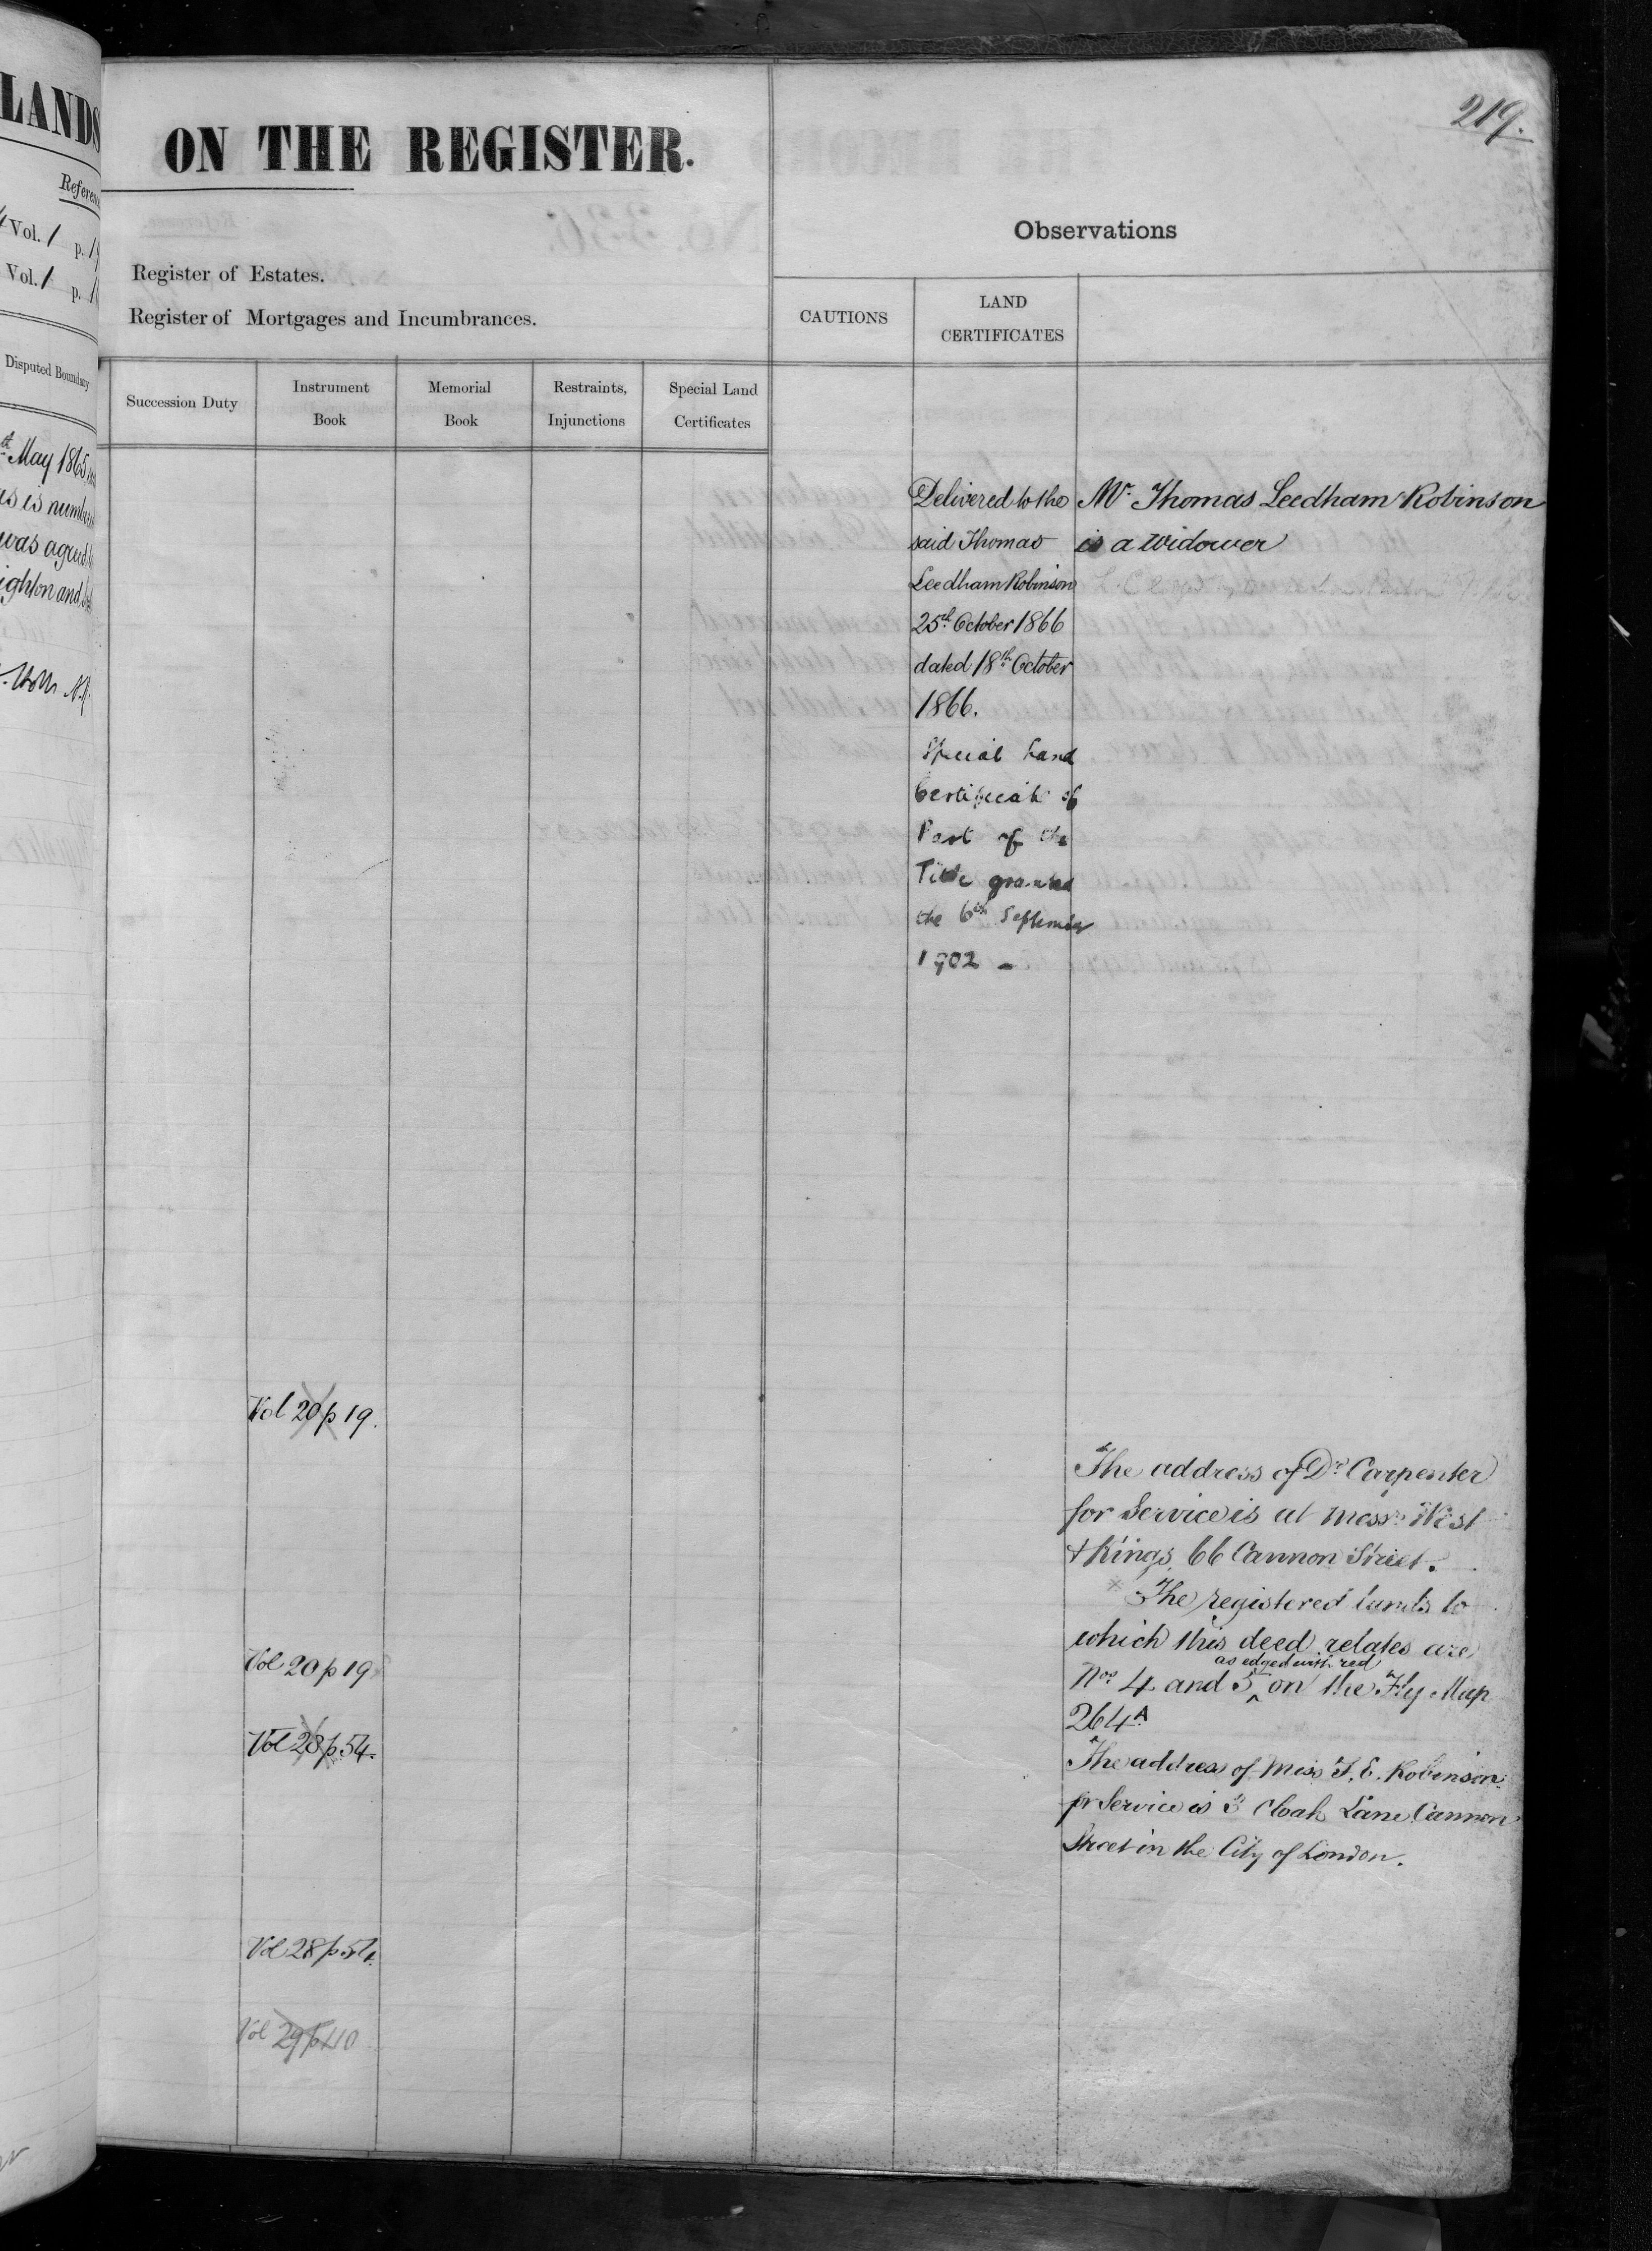 LANDS
Vol. 1 p.
Vol. 1 p.
Disputed Boundary
May 1865
as is
was
and
219.
ON THE REGISTER.
Register of Estates.
Register of Mortgages and Incumbrances.
Succession Duty
Instrument
Book
Memorial
Book
Restraints,
Injunctions
Special Land
Certificates
Vol 20 p 19.
Vol 20 p 19
Vol 28 p 54.
Vol 28 p 54.
Vol 29 p 40
Observations
CAUTIONS
LAND
CERTIFICATES
Delivered to the
said Thomas
Leedham Robinson
25th October 1866
dated 18th October
1866.
Special Land
Certificate of
Part of the
Title granted
the 6th September
1902 -
Mr. Thomas Leedham Robinson
is a Widower
The address of Dr Carpenter
for Service is at Messrs West
& Kings, 66 Cannon Street.
The registered lands to
which this deed relates are
as edged with red
Nos. 4 and 5 ^ on the Fly Map
264A
The address of Miss T. E. Robinson
for Service is 5 Cloak Lane Cannon
Street in the City of London.